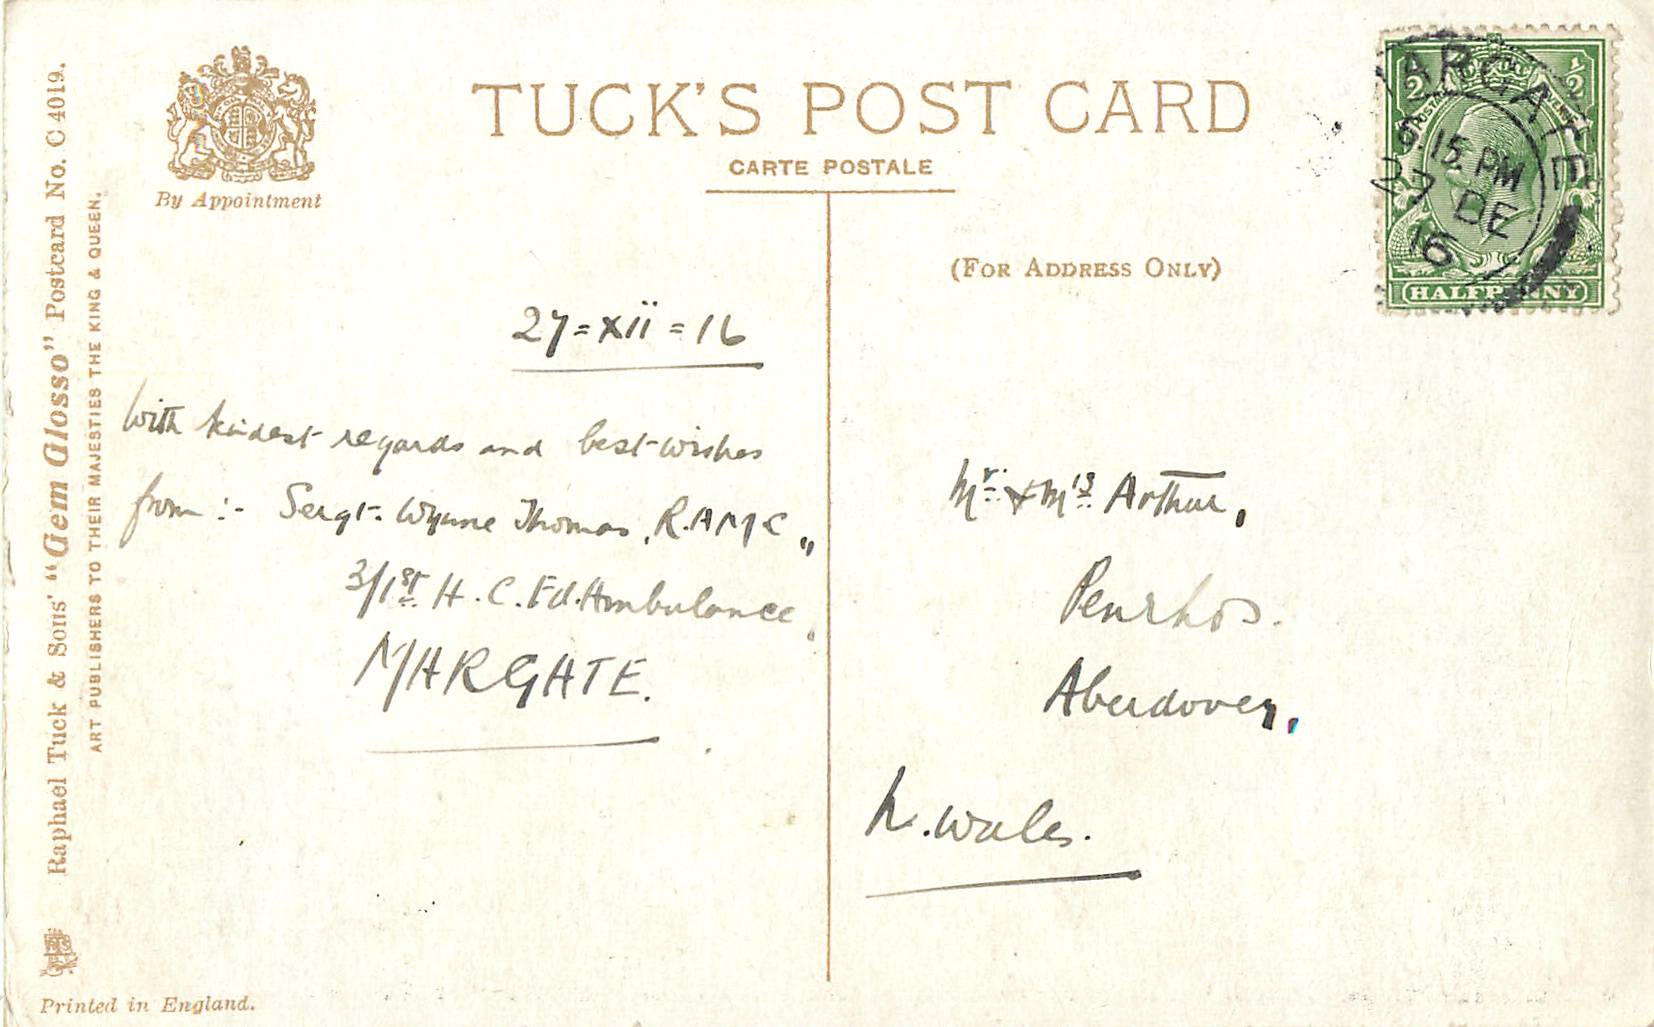 TUCK'S POST CARD
CARTE POSTALE
By Appointment
(FOR ADDRESS ONLY)
Raphael Tuck & Sons' "Gem Glosso" Postcard No. C 4019.
ART PUBLISHERS TO THEIR MAJESTIES THE KING & QUEEN.
Printed in England.
27=XII=16
With kindest regards and best wishes
from :- Sergt. Wynne Thomas, R.A.M.C.,
3/1st H.C. Fd. Ambulance,
MARGATE.
Mr. & Mrs. Arthur,
Penrhos.
Aberdovey,
N. Wales.
MARGATE
6.15 PM
27 DE
16
½ ½
HALFPENNY